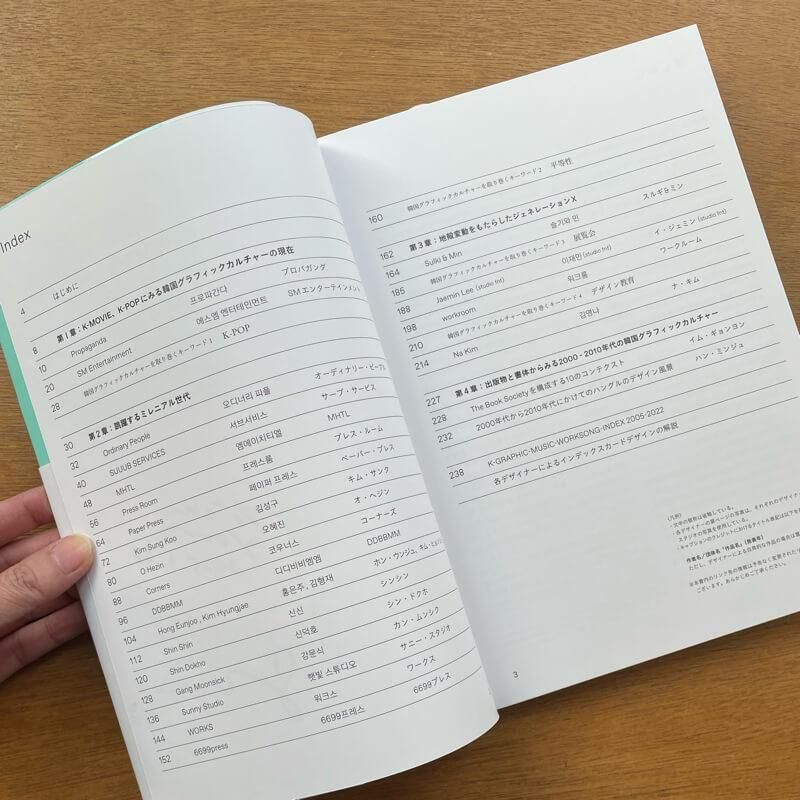 Index
4 はじめに
8 第1章：K-MOVIE、K-POPにみる韓国グラフィックカルチャーの現在
10 Propaganda 프로파간다 プロパガンダ
20 SM Entertainment 에스엠 엔터테인먼트 SM エンターテインメント
28 韓国グラフィックカルチャーを取り巻くキーワード 1 K-POP
30 第2章：跳躍するミレニアル世代
32 Ordinary People 오디너리 피플 オーディナリー・ピープル
40 SUUUB SERVICES 서브서비스 サーブ・サービス
48 MHTL 엠에이치티엘 MHTL
56 Press Room 프레스룸 プレス・ルーム
64 Paper Press 페이퍼 프레스 ペーパー・プレス
72 Kim Sung Koo 김성구 キム・サング
80 O Hezin 오혜진 オ・ヘジン
88 Corners 코우너스 コーナーズ
96 DDBBMM 디디비비엠엠 DDBBMM
104 Hong Eunjoo , Kim Hyungjae 홍은주, 김형재 ホン・ウンジュ、キム・ヒョンジェ
112 Shin Shin 신신 シンシン
120 Shin Dokho 신덕호 シン・ドクホ
128 Gang Moonsick 강문식 カン・ムンシク
136 Sunny Studio 햇빛 스튜디오 サニー・スタジオ
144 WORKS 워크스 ワークス
152 6699press 6699프레스 6699プレス
160 韓国グラフィックカルチャーを取り巻くキーワード 2 平等性
162 第3章：地殻変動をもたらしたジェネレーションX
164 Sulki & Min 슬기와 민 スルギ&ミン
185 韓国グラフィックカルチャーを取り巻くキーワード 3 展覧会
188 Jaemin Lee (studio fnt) 이재민 (studio fnt) イ・ジェミン (studio fnt)
198 workroom 워크룸 ワークルーム
210 韓国グラフィックカルチャーを取り巻くキーワード 4 デザイン教育
214 Na Kim 김영나 ナ・キム
227 第4章：出版物と書体からみる2000 - 2010年代の韓国グラフィックカルチャー
228 The Book Societyを構成する10のコンテクスト イム・ギョンヨン
232 2000年代から2010年代にかけてのハングルのデザイン風景 ハン・ミンジュ
238 K-GRAPHIC・MUSIC・WORKSONG・INDEX 2005-2022
各デザイナーによるインデックスカードデザインの解説
(凡例)
・文中の敬称は省略している。
・各デザイナーの扉ページの写真は、それぞれのデザイナ
スタジオの写真を使用している。
・キャプションのクレジットにおけるタイトル表記は以下を
作者名／団体名『作品名』(発表年)
ただし、デザイナーによる自発的な作品の場合は
※本書内のリンク先の情報は予告なく変更された
ございます。あらかじめご了承ください。
3